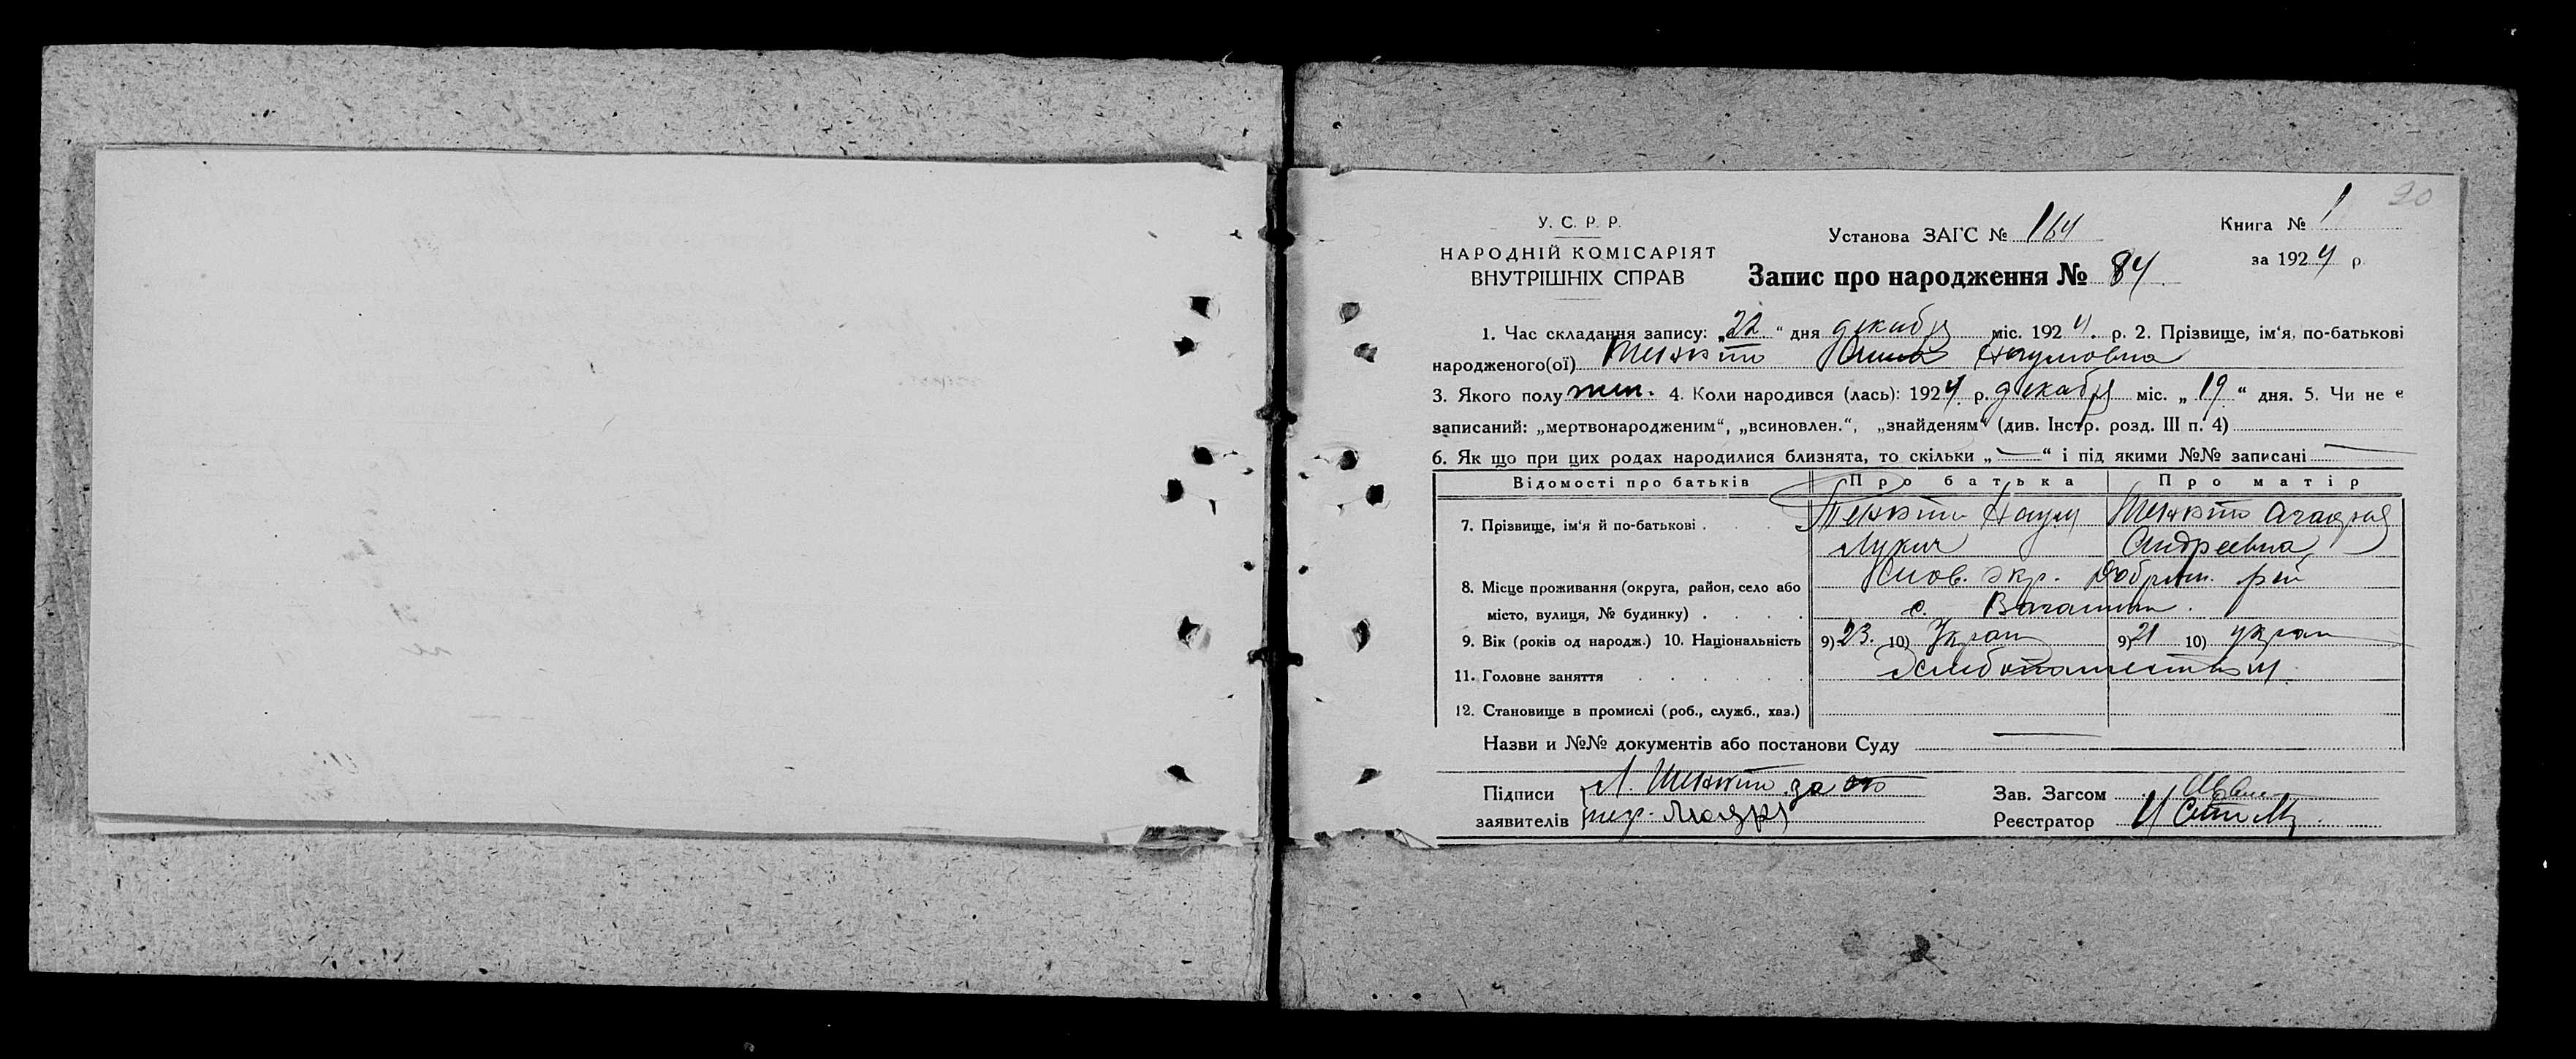 20
У. С. Р. Р.
НАРОДНІЙ КОМІСАРІЯТ
ВНУТРІШНІХ СПРАВ
Установа ЗАГС № 164
Книга № 1
за 1924 р
Запис про народження № 84
1. Час складання запису: „22“ дня декабря міс. 1924. р. 2. Прізвище, ім‘я, по-батькові
народженого(ої) Наумовна
3. Якого полу жен. 4. Коли народився (лась): 1924 р. декабря міс. „19“ дня. 5. Чи не є
записаний: „мертвонародженим“, „всиновлен.“, „знайденям“ (див. Інстр. розд. III п. 4)
6. Як що при цих родах народилися близнята, то скільки „—“ і під якими №№ записані —
Відомості про батьків Про батька Про матір
7. Прізвище, ім‘я й по-батькові . Наум
Лукич Андреевна
8. Місце проживання (округа, район, село або окр. рай
місто, вулиця, № будинку) . . . . с.
9. Вік (років од народж.) 10. Національність 9) 23. 10) Укран 9) 21 10) укран
11. Головне заняття . . . . . .
12. Становище в промислі (роб., служб., хаз.)
Назви и №№ документів або постанови Суду —
Підписи Л. за
заявителів
Зав. Загсом
Реєстратор